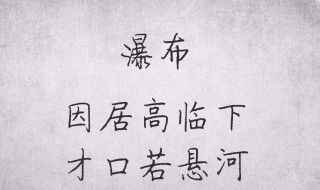 瀑布
因居高临下
才口若悬河